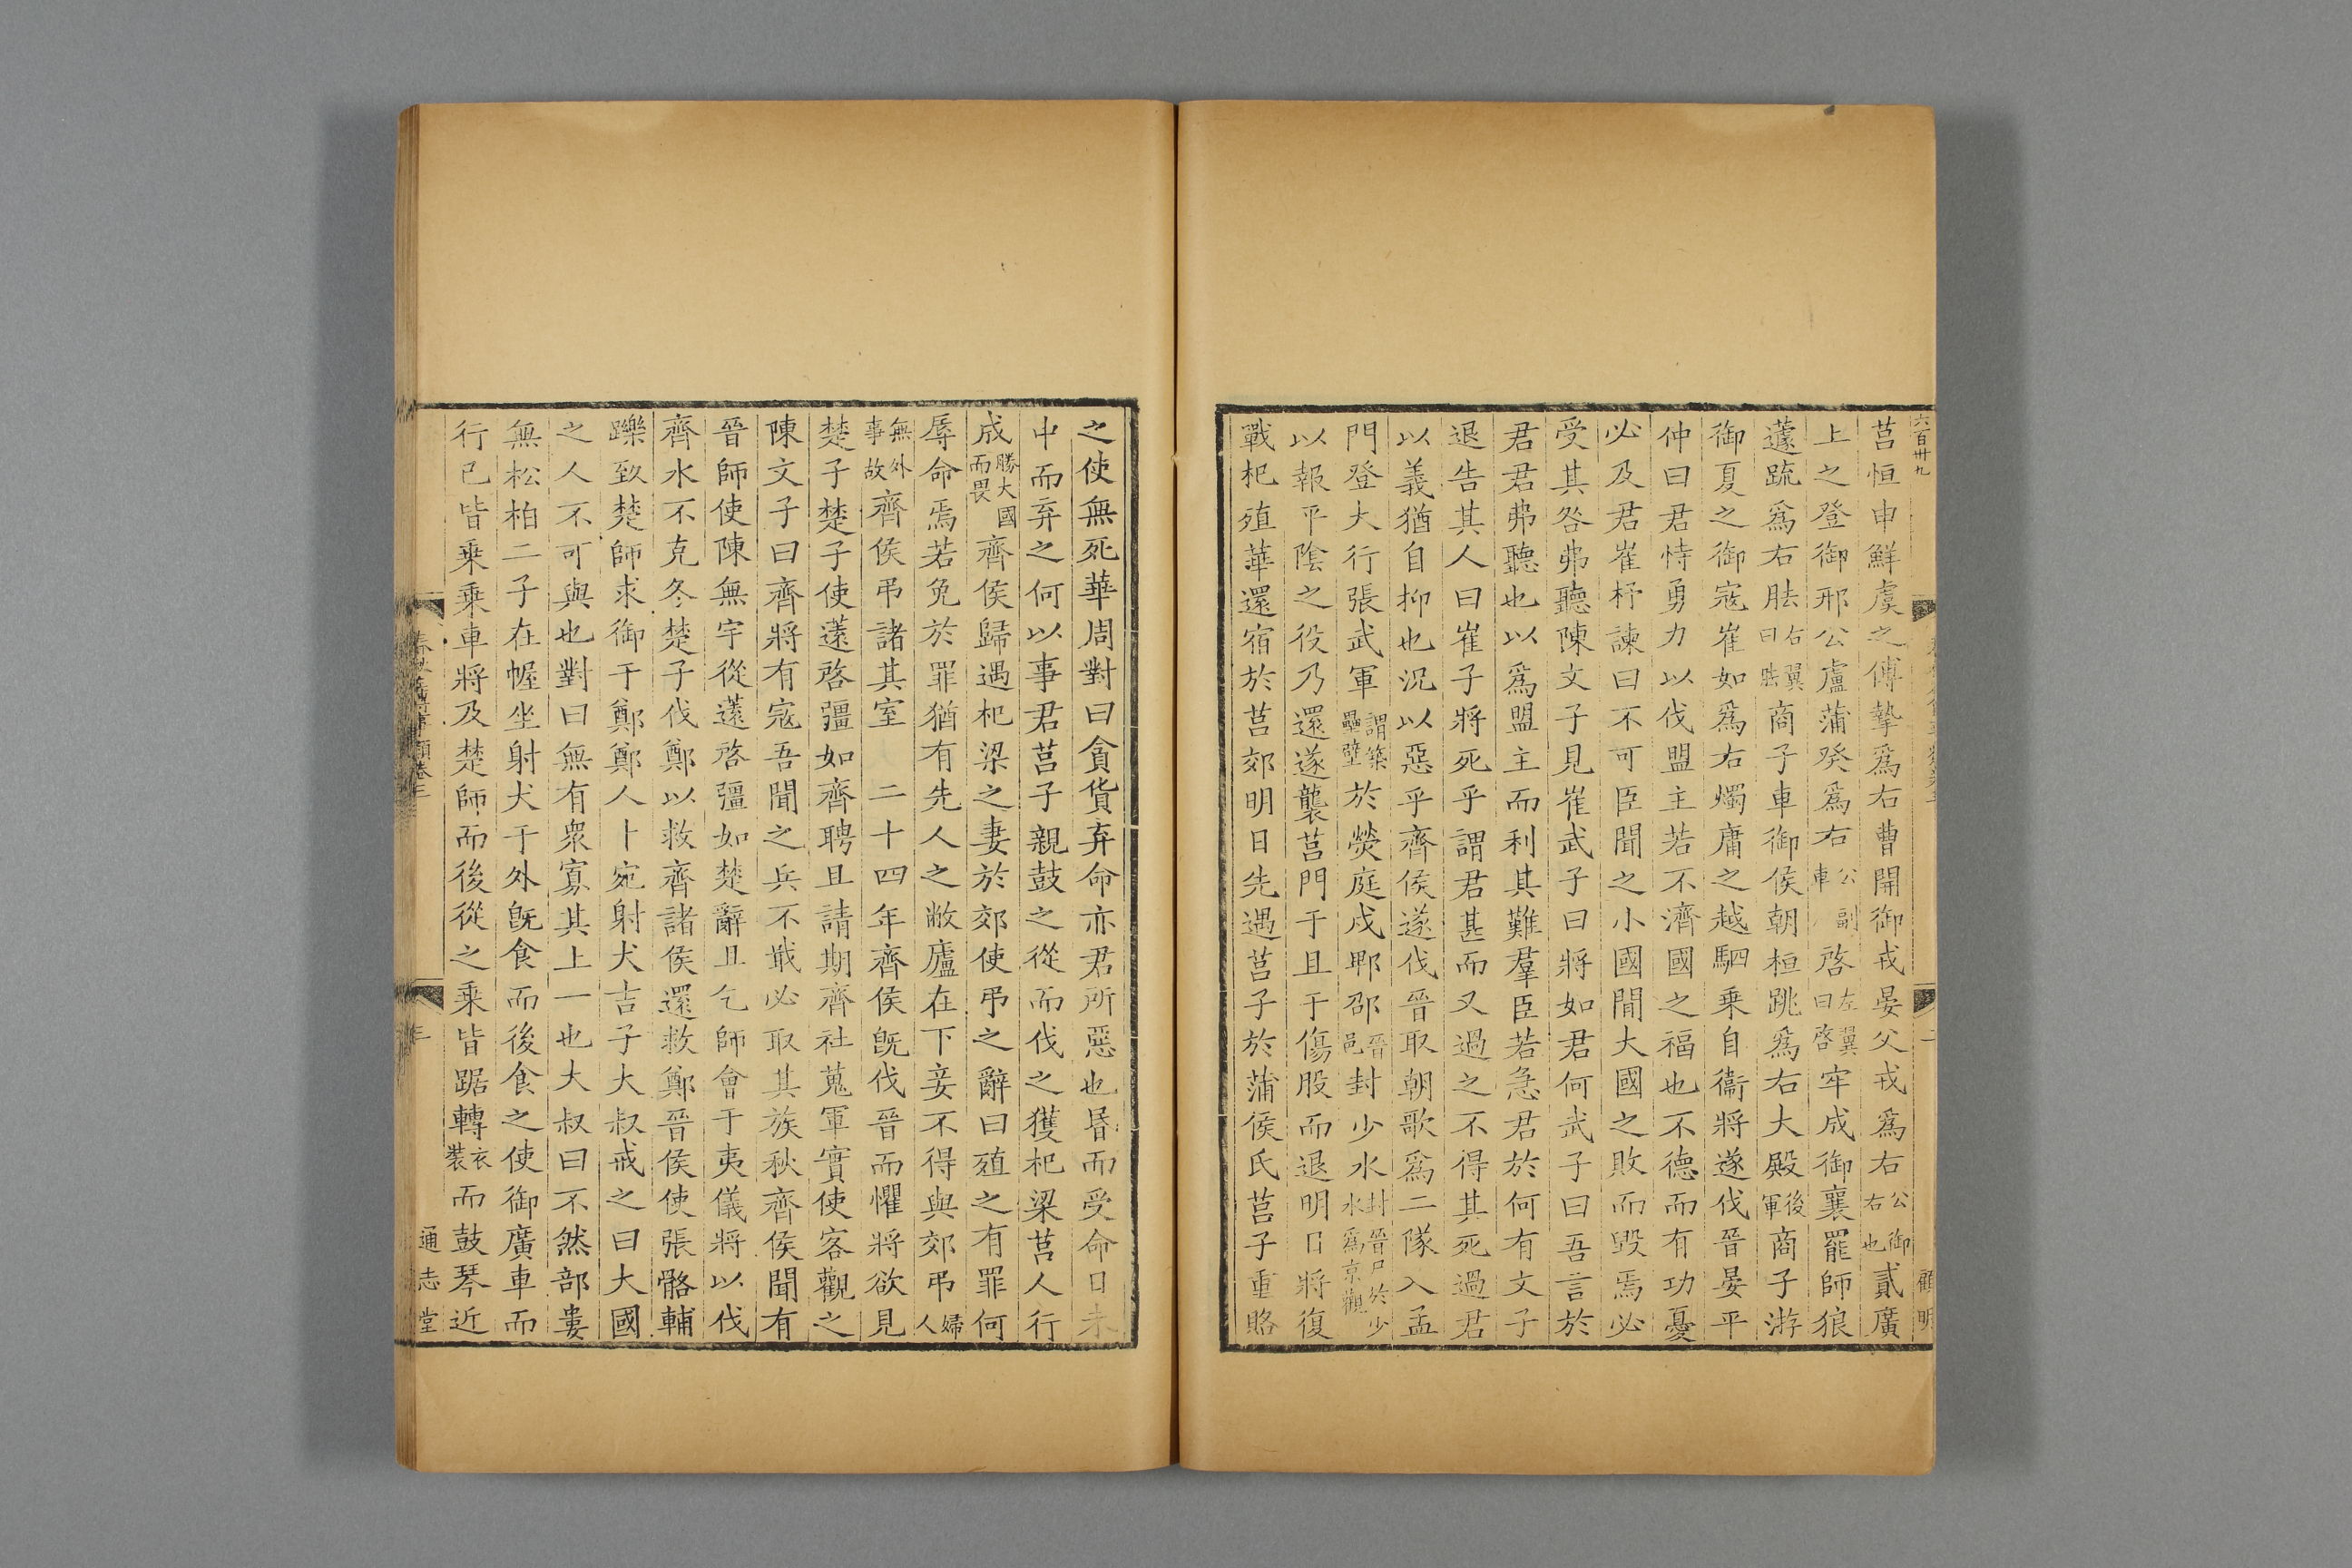 六百卅九
顧明
莒恒申鮮虞之傅摯爲右曹開御戎晏父戎爲右公御右也貳廣
上之登御邢公盧蒲癸爲右公副車啓左翼曰啓牢成御襄罷師狼
蘧䟽爲右胠右翼曰胠商子車御侯朝桓跳爲右大殿後軍商子游
御夏之御寇崔如爲右燭庸之越駟乗自衞將遂伐晉晏平
仲曰君恃勇力以伐盟主若不濟國之福也不德而有功憂
必及君崔杼諫曰不可臣聞之小國閒大國之敗而毀焉必
受其咎弗聽陳文子見崔武子曰將如君何武子曰吾言於
君君弗聽也以爲盟主而利其難羣臣若急君於何有文子
退告其人曰崔子將死乎謂君甚而又過之不得其死過君
以義猶自抑也况以惡乎齊侯遂伐晉取朝歌爲二隊入孟
門登大行張武軍謂築壘壁於熒庭戍郫邵晉邑封少水封晉尸於少水爲京觀
以報平陰之役乃還遂襲莒門于且于傷股而退明日將復
戰杞殖華還宿於莒郊明日先遇莒子於蒲侯氏莒子重賂
之使無死華周對曰貪貨弃命亦君所惡也昬而受命日未
中而弃之何以事君莒子親鼓之從而伐之獲杞梁莒人行
成勝大國而畏齊侯歸遇杞梁之妻於郊使弔之辭曰殖之有罪何
辱命焉若免於罪猶有先人之敝廬在下妾不得與郊弔婦人
無外事故齊侯弔諸其室 二十四年齊侯旣伐晉而懼將欲見
楚子楚子使薳啓彊如齊聘且請期齊社蒐軍實使客觀之
陳文子曰齊將有寇吾聞之兵不戢必取其族秋齊侯聞有
晉師使陳無宇從薳啓彊如楚辭且乞師會于夷儀將以伐
齊水不克冬楚子伐鄭以救齊諸侯還救鄭晉侯使張骼輔
躒致楚師求御于鄭鄭人卜宛射犬吉子大叔戒之曰大國
之人不可與也對曰無有衆寡其上一也大叔曰不然部婁
無松柏二子在幄坐射犬于外旣食而後食之使御廣車而
行已皆乗乗車將及楚師而後從之乗皆踞轉衣裝而鼓琴近
三
通志堂